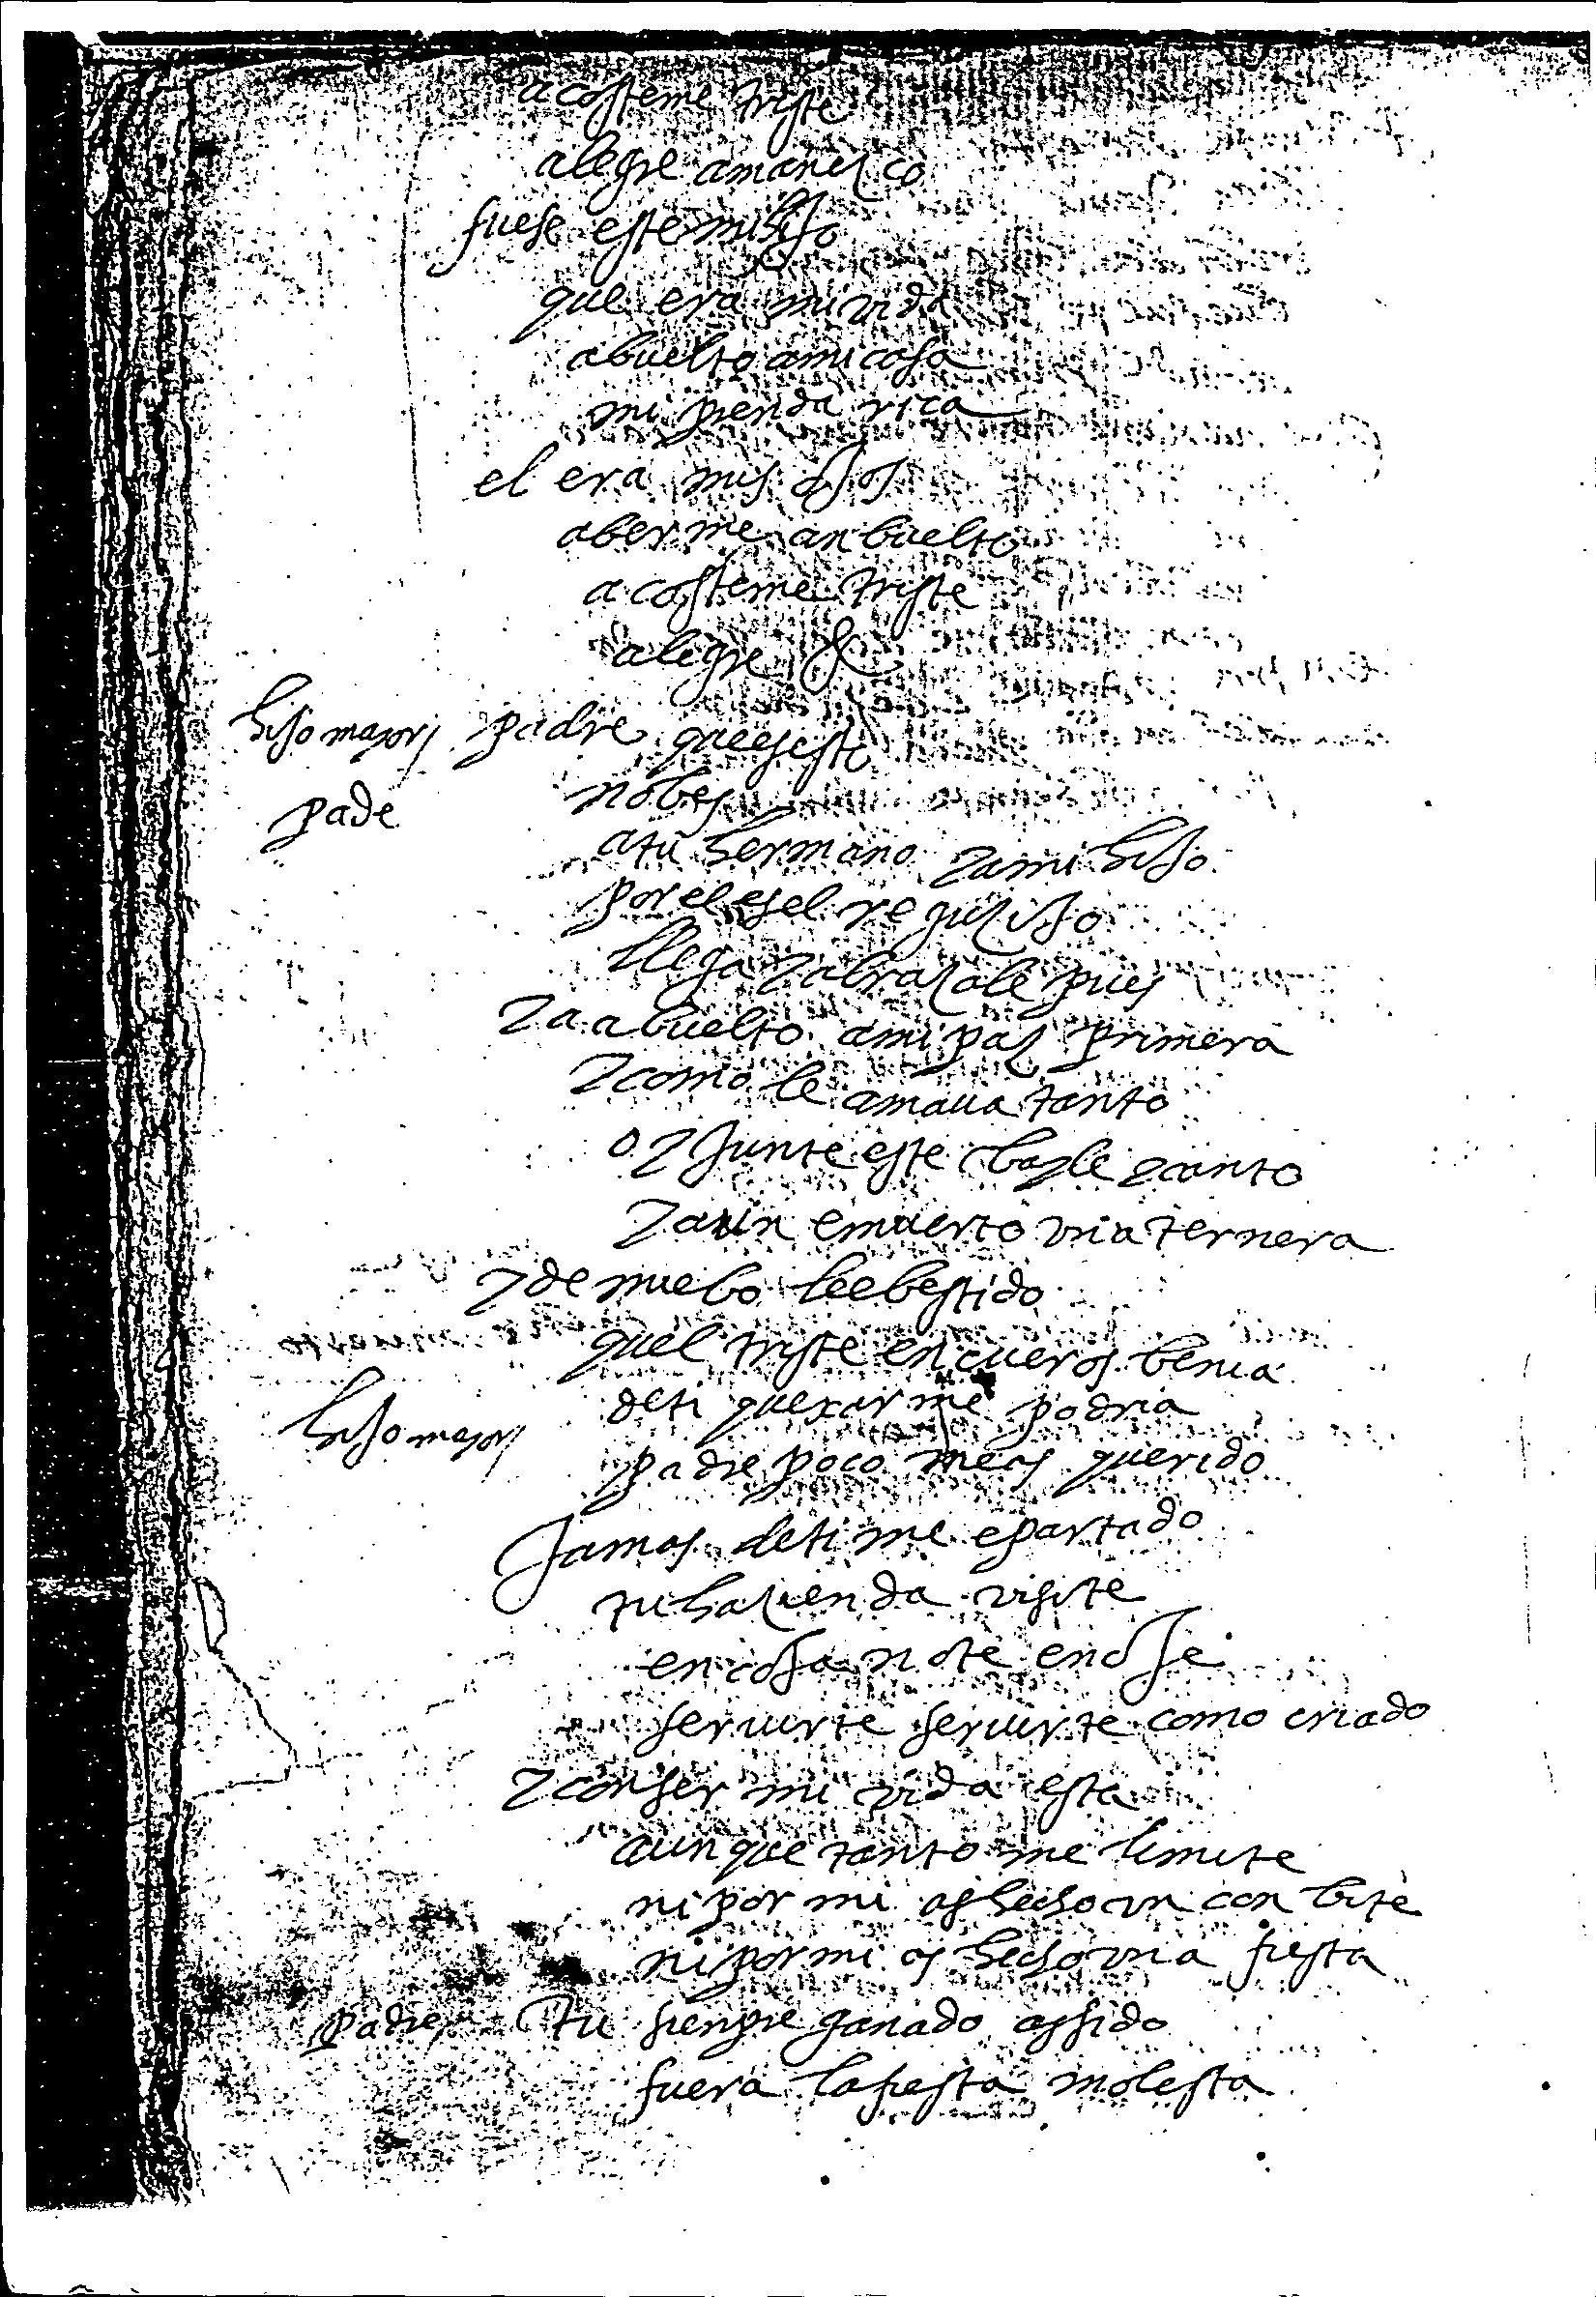 acosteme triste
alegre amanezco
fuese este mi hijo
que era mi vida
a buelto a mi casa
mi prenda rica
el era mis ojos
a berme an buelto
acosteme triste
alegre &
hijo mayor padre que es esto
padre no bes
a tu hermano y a mi hijo
por el es el reguzijo
llega y abrazale pues
ya a buelto a mi paz primera
y como le amaua tanto
oy junte este bayle y canto
y aun e muerto vna ternera
y de nuebo le e bestido
quel triste en cueros benia
hijo mayor de ti quexarme podria
padre poco me as querido
jamas de ti me e partado
tu hazienda visite
en cosa no te enoje
seruirte seruirte como criado
y con ser mi vida esta
aunque tanto me limite
ni por mi as hecho vn conbite
ni por mi as hecho vna fiesta
padre tu sienpre ganado as sido
fuera la fiesta molesta